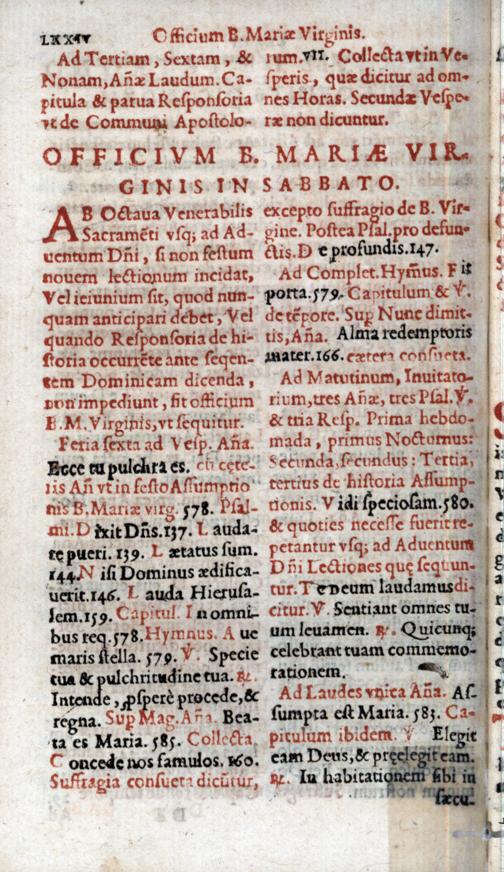 LXXIV Officium B. Mariæ Virginis.
Ad Tertiam, Sextam, &
Nonam, Añæ Laudum. Ca-
pitula & parua Responsoria
vt de Communi Apostolo-
rum. VII. Collecta vt in Ve-
speris, quæ dicitur ad om-
nes Horas. Secundæ Vespe-
ræ non dicuntur.
OFFICIVM B. MARIÆ VIR-
GINIS IN SABBATO.
AB Octaua Venerabilis
Sacramēti vsq; ad Ad-
uentum Dñi, si non festum
nouem lectionum incidat,
Vel ieiunium sit, quod nun-
quam anticipari debet, Vel
quando Responsoria de hi-
storia occurrēte ante seqen-
tem Dominicam dicenda,
non impediunt, fit officium
B. M. Virginis, vt sequitur.
Feria sexta ad Vesp. Aña.
Ecce tu pulchra es. cū cęte-
ris Añ vt in festo Assumptio
nis B. Mariæ virg. 578. Psal-
mi. Dixit Dñs. 137. Lauda-
te pueri. 139. Lætatus sum.
144. Nisi Dominus ædifica-
uerit. 146. Lauda Hierusa-
lem. 159. Capitul. In omni-
bus req. 578. Hymnus. Aue
maris stella. 579. ℣. Specie
tua & pulchritudine tua. ℟.
Intende, ꝓsperè procede, &
regna. Sup Mag. Aña. Bea-
ta es Maria. 585. Collecta.
Concede nos famulos. 160.
Suffragia consueta dicūtur,
excepto suffragio de B. Vir-
gine. Postea Psal. pro defun-
ctis. De profundis. 147.
Ad Complet. Hym̃us. Fit
porta. 579. Capitulum & ℣.
de tēpore. Sup Nunc dimit-
tis, Aña. Alma redemptoris
mater. 166. cætera consueta.
Ad Matutinum, Inuitato-
rium, tres Añæ, tres Psal. ℣.
& tria Resp. Prima hebdo-
mada, primus Nocturnus:
Secunda, secundus: Tertia,
tertius de historia Assump-
tionis. Vidi speciosam. 580.
& quoties necesse fuerit re-
petantur vsq; ad Aduentum
Dñi Lectiones quę seqūun-
tur. Te Deum laudamus di-
citur. ℣. Sentiant omnes tu-
um leuamen. ℟. Quicunq;
celebrant tuam commemo-
rationem.
Ad Laudes vnica Aña. As-
sumpta est Maria. 583. Ca-
pitulum ibidem. ℣ Elegit
eam Deus, & pręelegit eam.
℟. In habitationem sibi in
sæcu-